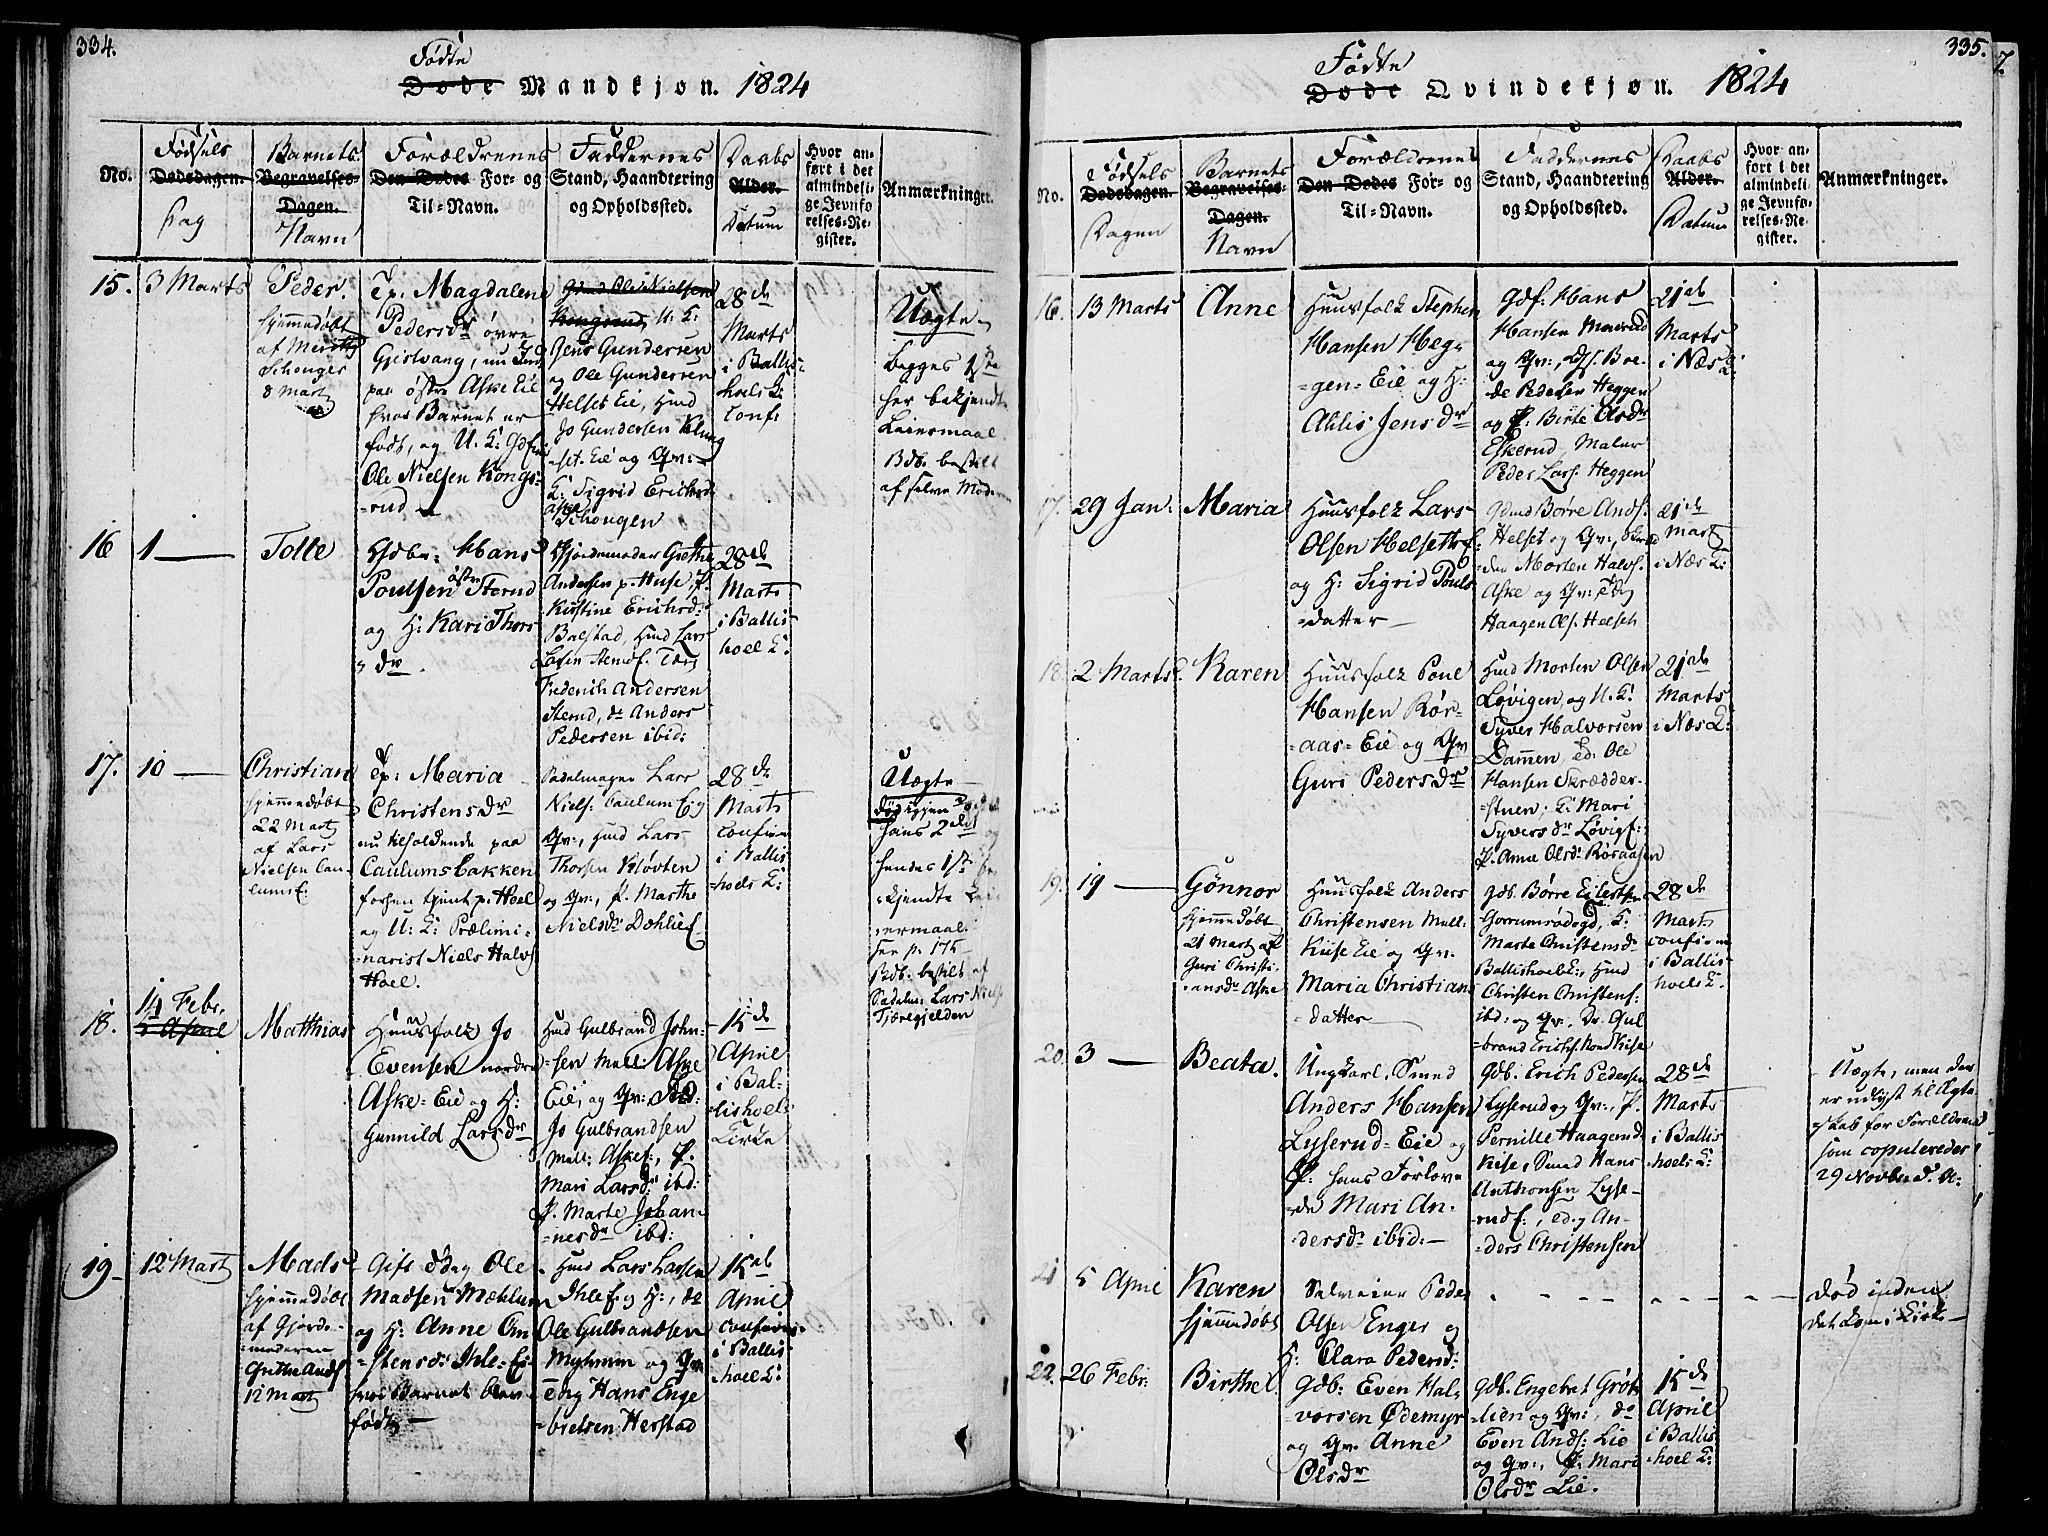 334.
Fødte
Døde Mandkjøn. 1824
No.
Fødsels
Dødsdagen.
Dag
Barnets
Begravelses-
Dagen.
Navn
Forældrenes
Den Dødes For- og
Til-Navn.
Faddernes
Stand, Haandtering
og Opholdssted.
Daabs
Alder.
Datum
Hvor an-
ført i det
almindeli-
ge Jevnfø-
relses-Re-
gister.
Anmærkninger.
15.
3 Marts
Peder.
hjemmedøbt
af
Schonger
8 Marts
Tp: Magdalene
Pedersdr øvre
Gjestvang, nu
paa østre Aske Eie
hvor Barnet er
født, og U. K:
Ole Nielsen Kongs-
=rud
Gmd Ole Nielsen
Kongsrud U. K:
Jens Gundersen
og Ole Gundersen
Helset Eie, Hmd
Jo Gundersen Klung
=set Eie og Qv:
K: Sigrid Erichsd.
Schongen
28de
Marts
i Ballis-
hoels K:
Conf:
Uægte
begges 1ste
her bekjendte
Leiermaal.
Bdb. bestilt
af selve Moderen
16
1 —
Tolle
Gdbr: Hans
Poulsen østre Sterud
og H: Kari Thors
=dr.
Gjordemoder Grethe
Andersen p. Huse, P.
Kirstine Erichsdr
Balstad, Hmd Lars
Frederich Andersen
Sterud, do Anders
Pedersen ibid:
28de
Marts
i Ballis-
hoel K:
17.
10 —
Christian
hjemmedøbt
22 Marts
af Lars
Nielsen Cau-
lumsE.
Tp: Maria
Christensdr
nu tilholdende paa
Caulumsbakken
forhen tjent p: Hoel
og U: K: Prælimi-
narist Niels Halvs
Hoel.
Sadelmager Lars
Niels: Caulum E: og
Qv:, Hmd Lars
Thorsen Kløvten
og Qv:, P. Marthe
Nielsdr DæhlieE.
28de
Marts
confirm
i Ballis-
=hoels K:
Uægte
hans 2det og
hendes 1ste be
=kjendte Lei
=ermaal.
see p. 175
Bdb: bestilt af
Sadelm: Lars Niels
Tjæregjelden
18.
14 Febr.
5 April
Matthias
Huusfolk Jo
Evensen nordre
Aske=Eie og H:
Gunnild Larsdr
Hmd Gulbrand John-
=sen Mell: Aske
Eie, og Qv:,
Jo Gulbrandsen
Mell: AskeE:, P.
Mari Larsdr ibid:
P. Marte Johan-
=nesdr ibd:
15de
April
i Bal-
=lishoels
Kirke
19
12 Mart
Mads
hjemmedøbt
af Gjorde-
=moderen
Grethe Ands
12 Mart
Gift Ole
Madsen Mæhlum
og H: Anne Em
=stensdr Ihle=Ei
hvor Barnet blev
født
Hmd Lars Larsen
IhleE. og H:, do
Ole Gulbrandsen
Myhrum og Qv
Hans Enge
=bretsen Herstad
15de
April
confirm
i Ballis-
=hoel K:
335.
7.
Fødte
Døde Qvindekjøn. 1824
No.
Fødsels
Dødsdagen.
Dagen
Barnets
Begravelses-
Dagen.
Navn
Forældrenes
Den Dødes For- og
Til-Navn.
Faddernes
Stand, Haandtering
og Opholdssted.
Daabs
Alder.
Datum
Hvor an-
ført i det
almindeli-
ge Jevnfø-
relses-Re-
gister.
Anmærkninger.
16.
13 Marts
Anne
Huusfolk Stephen
Hansen Heg-
=gen=Eie og H:
Ahlis Jensdr
Gdf: Hans
Hansen
og Qv:, Bre-
de Pedersen Heggen
og P. Birte Olsdr
Eskerud, Maler
Peder Lars. Heggen
21de
Marts
i Næs K:
17.
29 Jan:
Maria
Huusfolk Lars
Olsen HelsethE:
og H: Sigrid Pouls
=datter
Gdmd Børre Ands.
Helset og Qv:,
=der Morten Halvs.
Aske og Qv:,
Haagen Ols. Helseth
21de
Marts
i Næs K:
18.
2 Marts
Karen
Huusfolk Poul
Hansen Rør-
=aas=Eie og Qv
Guri Pedersdr
Hmd Morten Olsen
Løvigen, og U. K:
Syver Halvorsen
Dammen, ed: Ole
Hansen Skrædder-
=stuen, K: Mari
Syversdr LøvigE:
P. Anne Olsdr Røraasen
21de
Marts
i Næs K:
19.
19 —
Gønnor
hjemmedøbt
21 Marts af
Guri Christi-
=ansdr Aske
Huusfolk Anders
Christensen Mell:
Kiise Eie og Qv.
Maria Christians
=datter
Gdb. Børre
K:
Marte Christensdr
BallishoelE:, Hmd
Christen Christens:
ibd: og Qv:, Dr. Gul
=brand Erichs. Nord Kise
28de
Marts
confirm
i Ballis-
hoels K:
20.
3 —
Beata.
Ungkarl, Smed
Anders Hansen
Lyserud=Eie og
P: hans Forlove
=de Mari An-
dersdr ibid:
Gdb. Erich Pedersen
Lyserud og Qv:, P.
Pernille Haagensd.
Kise, Smed Hans
Anthonsen Lyse-
=rudE:, ed. og An-
=ders Christensen
28de
Marts
i Ballis
=hoels K:
Uægte, men der
er udlyst til Ægte
skab for Forældrene
som copuleredes
29 Novber d. A:
21
5 April
Karen
hjemmedøbt
Selveier Peder
Olsen Enger og
H: Clara Pedersd:
Død inden
det kom i Kirke
22.
26 Febr:
Birthe.
Gdb: Even Hal-
vorsen Ødemyr
og Qv. Anne
Olsdr
Gdb. Engebret Grøt-
=lien og Qv:, do
Even Ands: Lie
og Qv:, P. Mari
Olsdr Lie.
15de
April
i Ballis
=hoel K: